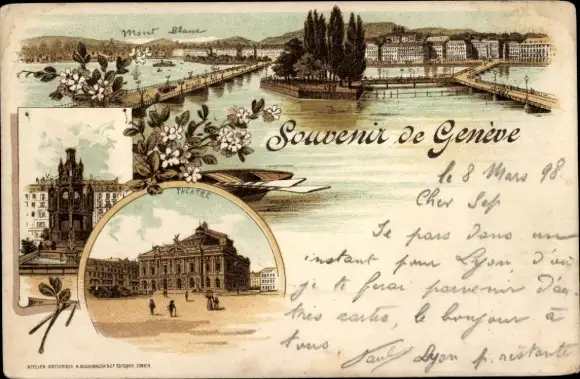 Mont Blanc
Souvenir de Genève
THÉATRE
le 8 Mars 98.
Cher Sep
Je pars dans un
instant pour Lyon d'où
je te ferai parvenir d'au
tres cartes, le bonjour à
tous, Paul Lyon p. restante
ATELIER ARTISTIQUE H. GUGGENHEIM & Co EDITEURS, ZURICH